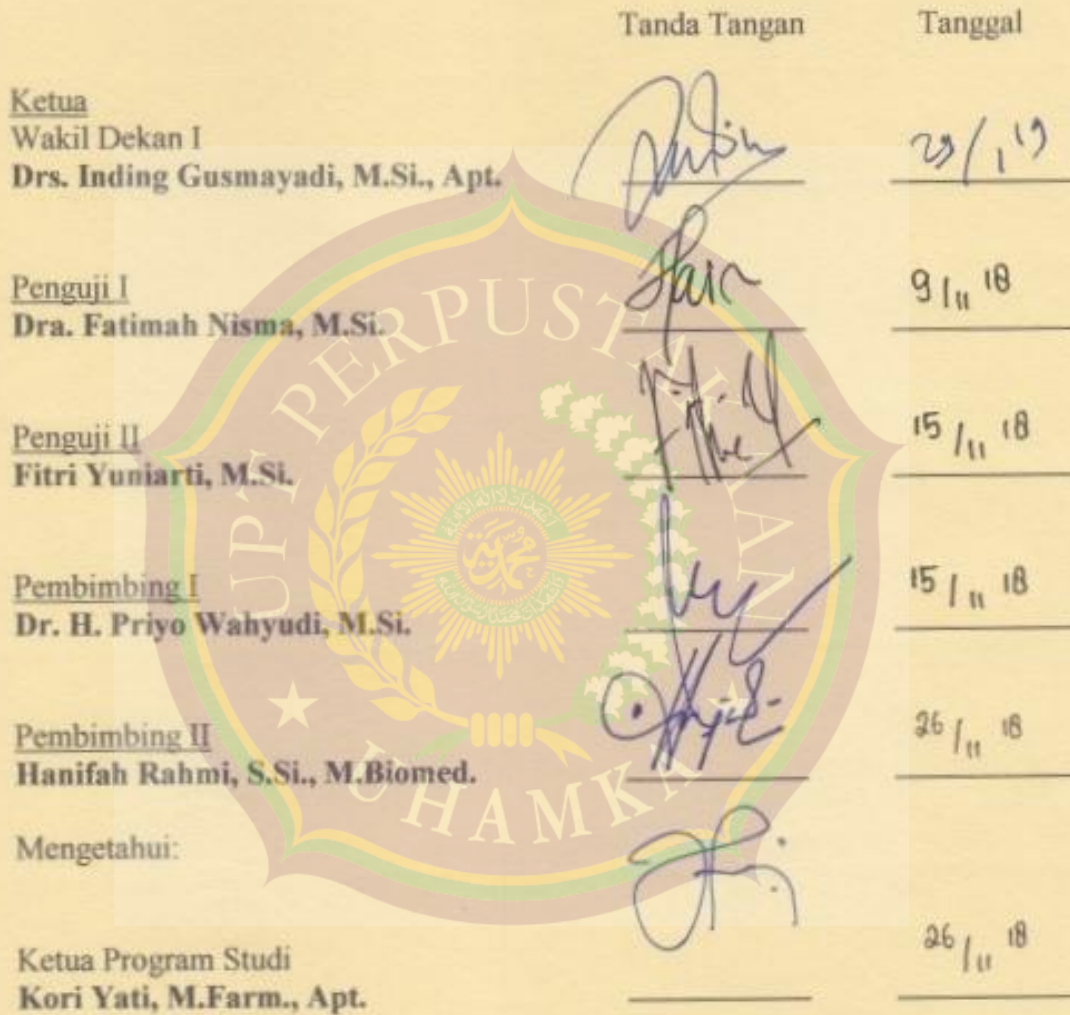 Tanda Tangan Tanggal
Ketua
Wakil Dekan I
Drs. Inding Gusmayadi, M.Si., Apt. 29/1 19
Penguji I
Dra. Fatimah Nisma, M.Si. 9/11 18
Penguji II
Fitri Yuniarti, M.Si. 15/11 18
Pembimbing I
Dr. H. Priyo Wahyudi, M.Si. 15/11 18
Pembimbing II
Hanifah Rahmi, S.Si., M.Biomed. 26/11 18
Mengetahui:
Ketua Program Studi
Kori Yati, M.Farm., Apt. 26/11 18
UPT PERPUSTAKAAN
UHAMKA